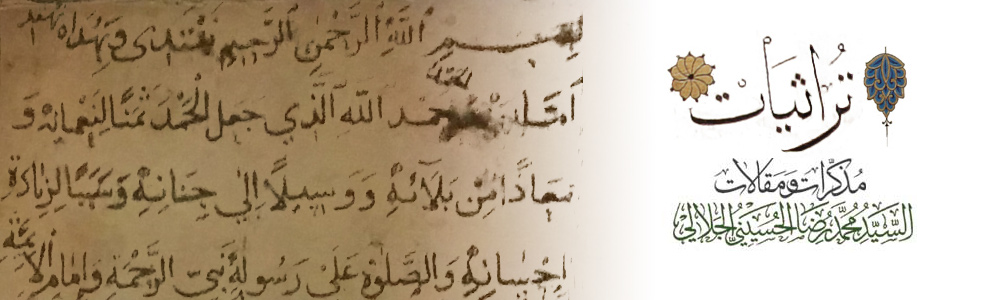 بسم الله الرحمن الرحيم نقتدي وبهداه نهتدي
اما بعد حمد الله الذي جعل الحمد ثمنا لنعمائه و
معاذا من بلائه و وسيلا إلى جنانه وسببا لزيادة
احسانه والصلوة على رسوله نبي الرحمة وامام الائمة
تراثيات
مذكرات ومقالات
السيد محمد رضا الحسيني الجلالي